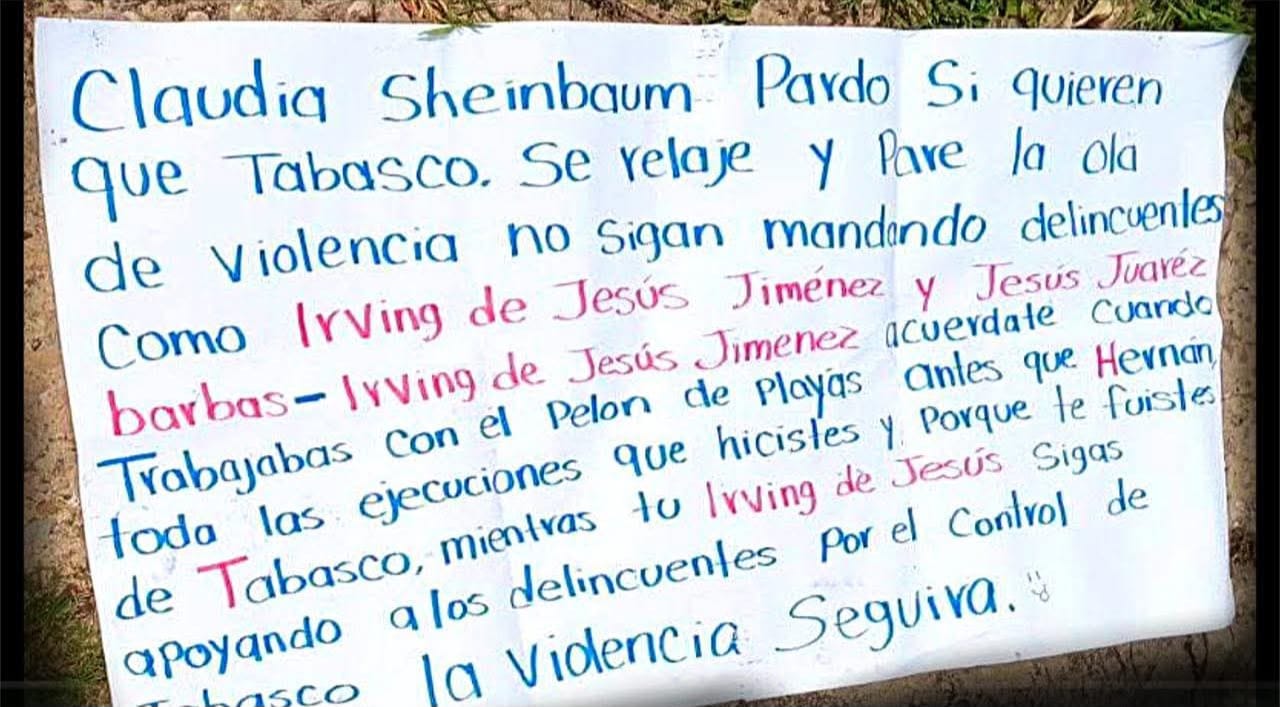 Claudia Sheinbaum Pardo Si quieren
que Tabasco. Se relaje y Pare la ola
de violencia no sigan mandando delincuentes
Como Irving de Jesús Jiménez y Jesús Juaréz
barbas-Irving de Jesús Jimenez acuerdate Cuando
Trabajabas Con el Pelon de Playas antes que Hernán
toda las ejecuciones que hicistes y Porque te fuistes
de Tabasco, mientras tu Irving de Jesús Sigas
apoyando a los delincuentes Por el Control de
Tabasco la Violencia Seguira.